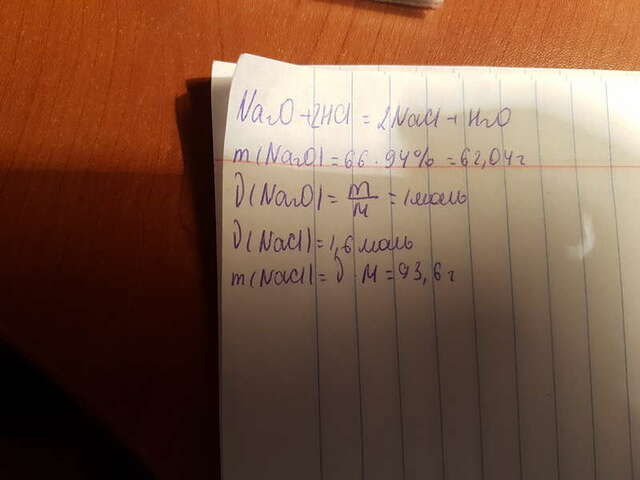 Na₂O + 2HCl = 2NaCl + H₂O
m(Na₂O) = 66 · 94% = 62,04 г
ν(Na₂O) = m/M = 1 моль
ν(NaCl) = 1,6 моль
m(NaCl) = ν · M = 93,6 г